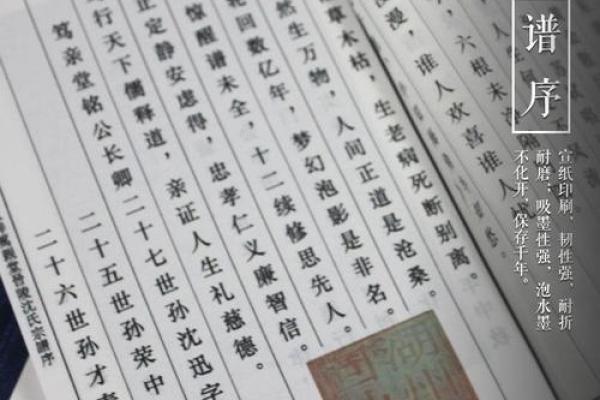 谱序
宣纸印刷、韧性强、耐折
耐磨、吸墨性强、泡水墨
不化开、保存千年。
六根未
漫，谁人欢喜谁人
草木枯，生老病死断别离。
然生万物，人间正道是沧桑。
轮回数亿年，梦幻泡影是非名。
惊醒谱未全，十二续修思先人。
正定静安虑得，忠孝仁义廉智信。
行天下儒释道，亲证人生礼慈德。
笃亲堂铭公长卿 二十七世孙沈迅字
二十五世孙荣中
二十六世孙才
沈氏宗谱序
湖州